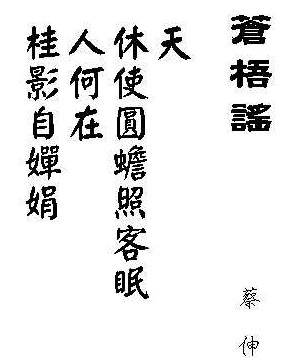 蒼梧謠
蔡伸
天
休使圓蟾照客眠
人何在
桂影自嬋娟